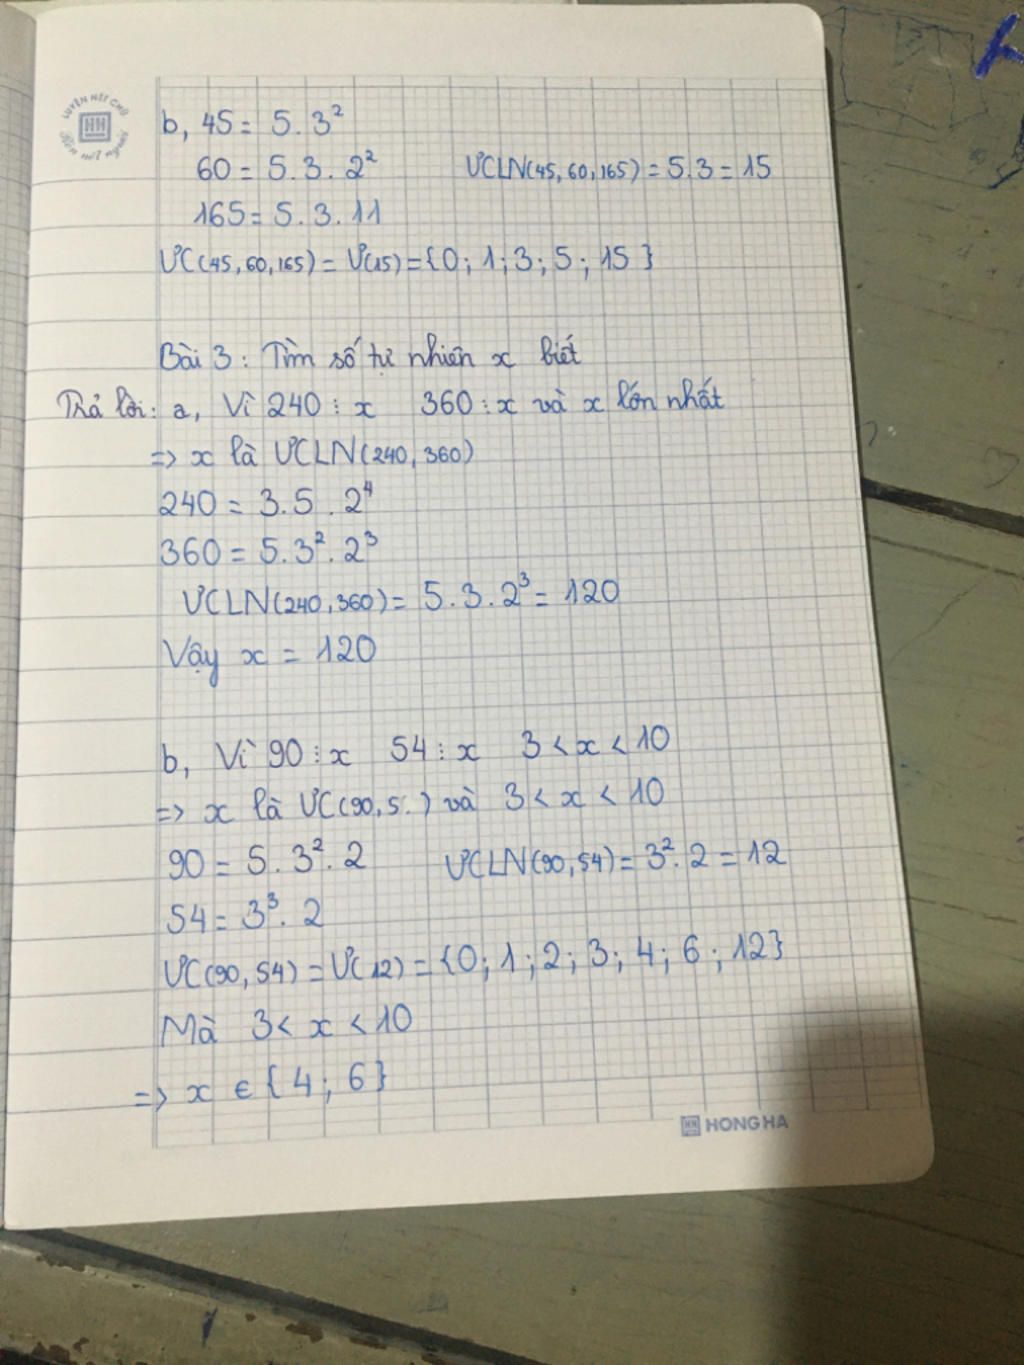 LUYỆN NÉT CHỮ
HH
Rèn nết người
b, 45 = 5.3²
60 = 5.3.2² ƯCLN(45,60,165) = 5.3 = 15
165 = 5.3.11
ƯC(45,60,165) = Ư(15) = {0; 1; 3; 5; 15}
Bài 3: Tìm số tự nhiên x biết
Trả lời: a, Vì 240 ⋮ x 360 ⋮ x và x lớn nhất
=> x là ƯCLN(240,360)
240 = 3.5.2⁴
360 = 5.3².2³
ƯCLN(240,360) = 5.3.2³ = 120
Vậy x = 120
b, Vì 90 ⋮ x 54 ⋮ x 3 < x < 10
=> x là ƯC(90,5.) và 3 < x < 10
90 = 5.3².2 ƯCLN(90,54) = 3².2 = 12
54 = 3³.2
ƯC(90,54) = Ư(12) = {0; 1; 2; 3; 4; 6; 12}
Mà 3 < x < 10
=> x ∈ {4; 6}
HH HONG HA